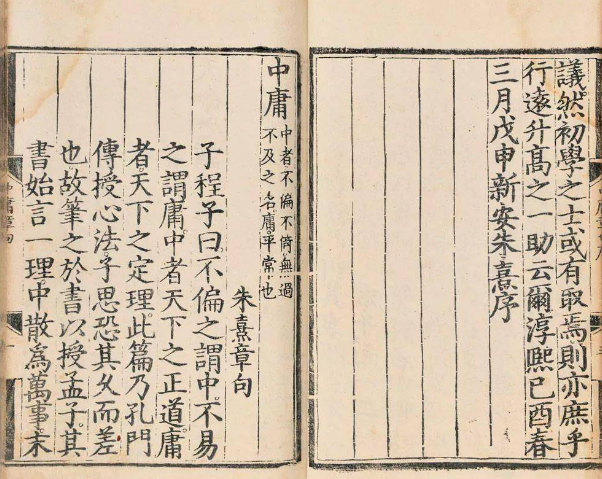 議然初學之士或有取焉則亦庶乎
行遠升高之一助云爾淳熙己酉春
三月戊申新安朱熹序
中庸
中者不偏不倚無過
不及之名庸平常也
朱熹章句
子程子曰不偏之謂中不易
之謂庸中者天下之正道庸
者天下之定理此篇乃孔門
傳授心法子思恐其久而差
也故筆之於書以授孟子其
書始言一理中散為萬事末